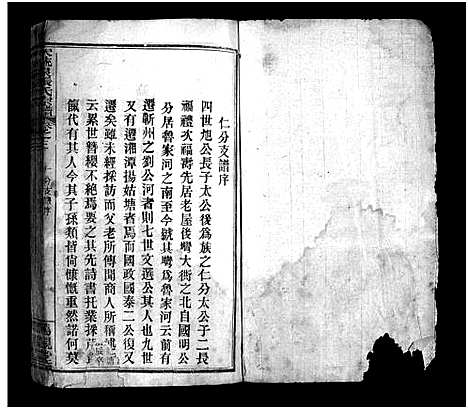 仁分支譜序
四世旭公長子太公後為族之仁分太公于二長
福禮次福壽先居老屋後彎大衡之北自國明公
分居魯家河之南至今號其彎為魯家河云前有
遷蘄州之劉公河者則七世文選公其人也九世
又遷湘潭揚姑塘者焉而國政國泰二公復又
遷矣雖未經採訪而父老所傳聞商人所稱述
云累世簪纓不絕焉要之其先詩書托業採芹
餼代有其人今其子孫類皆倜儻慷慨重然諾何莫
氏宗譜卷之三
分支譜序